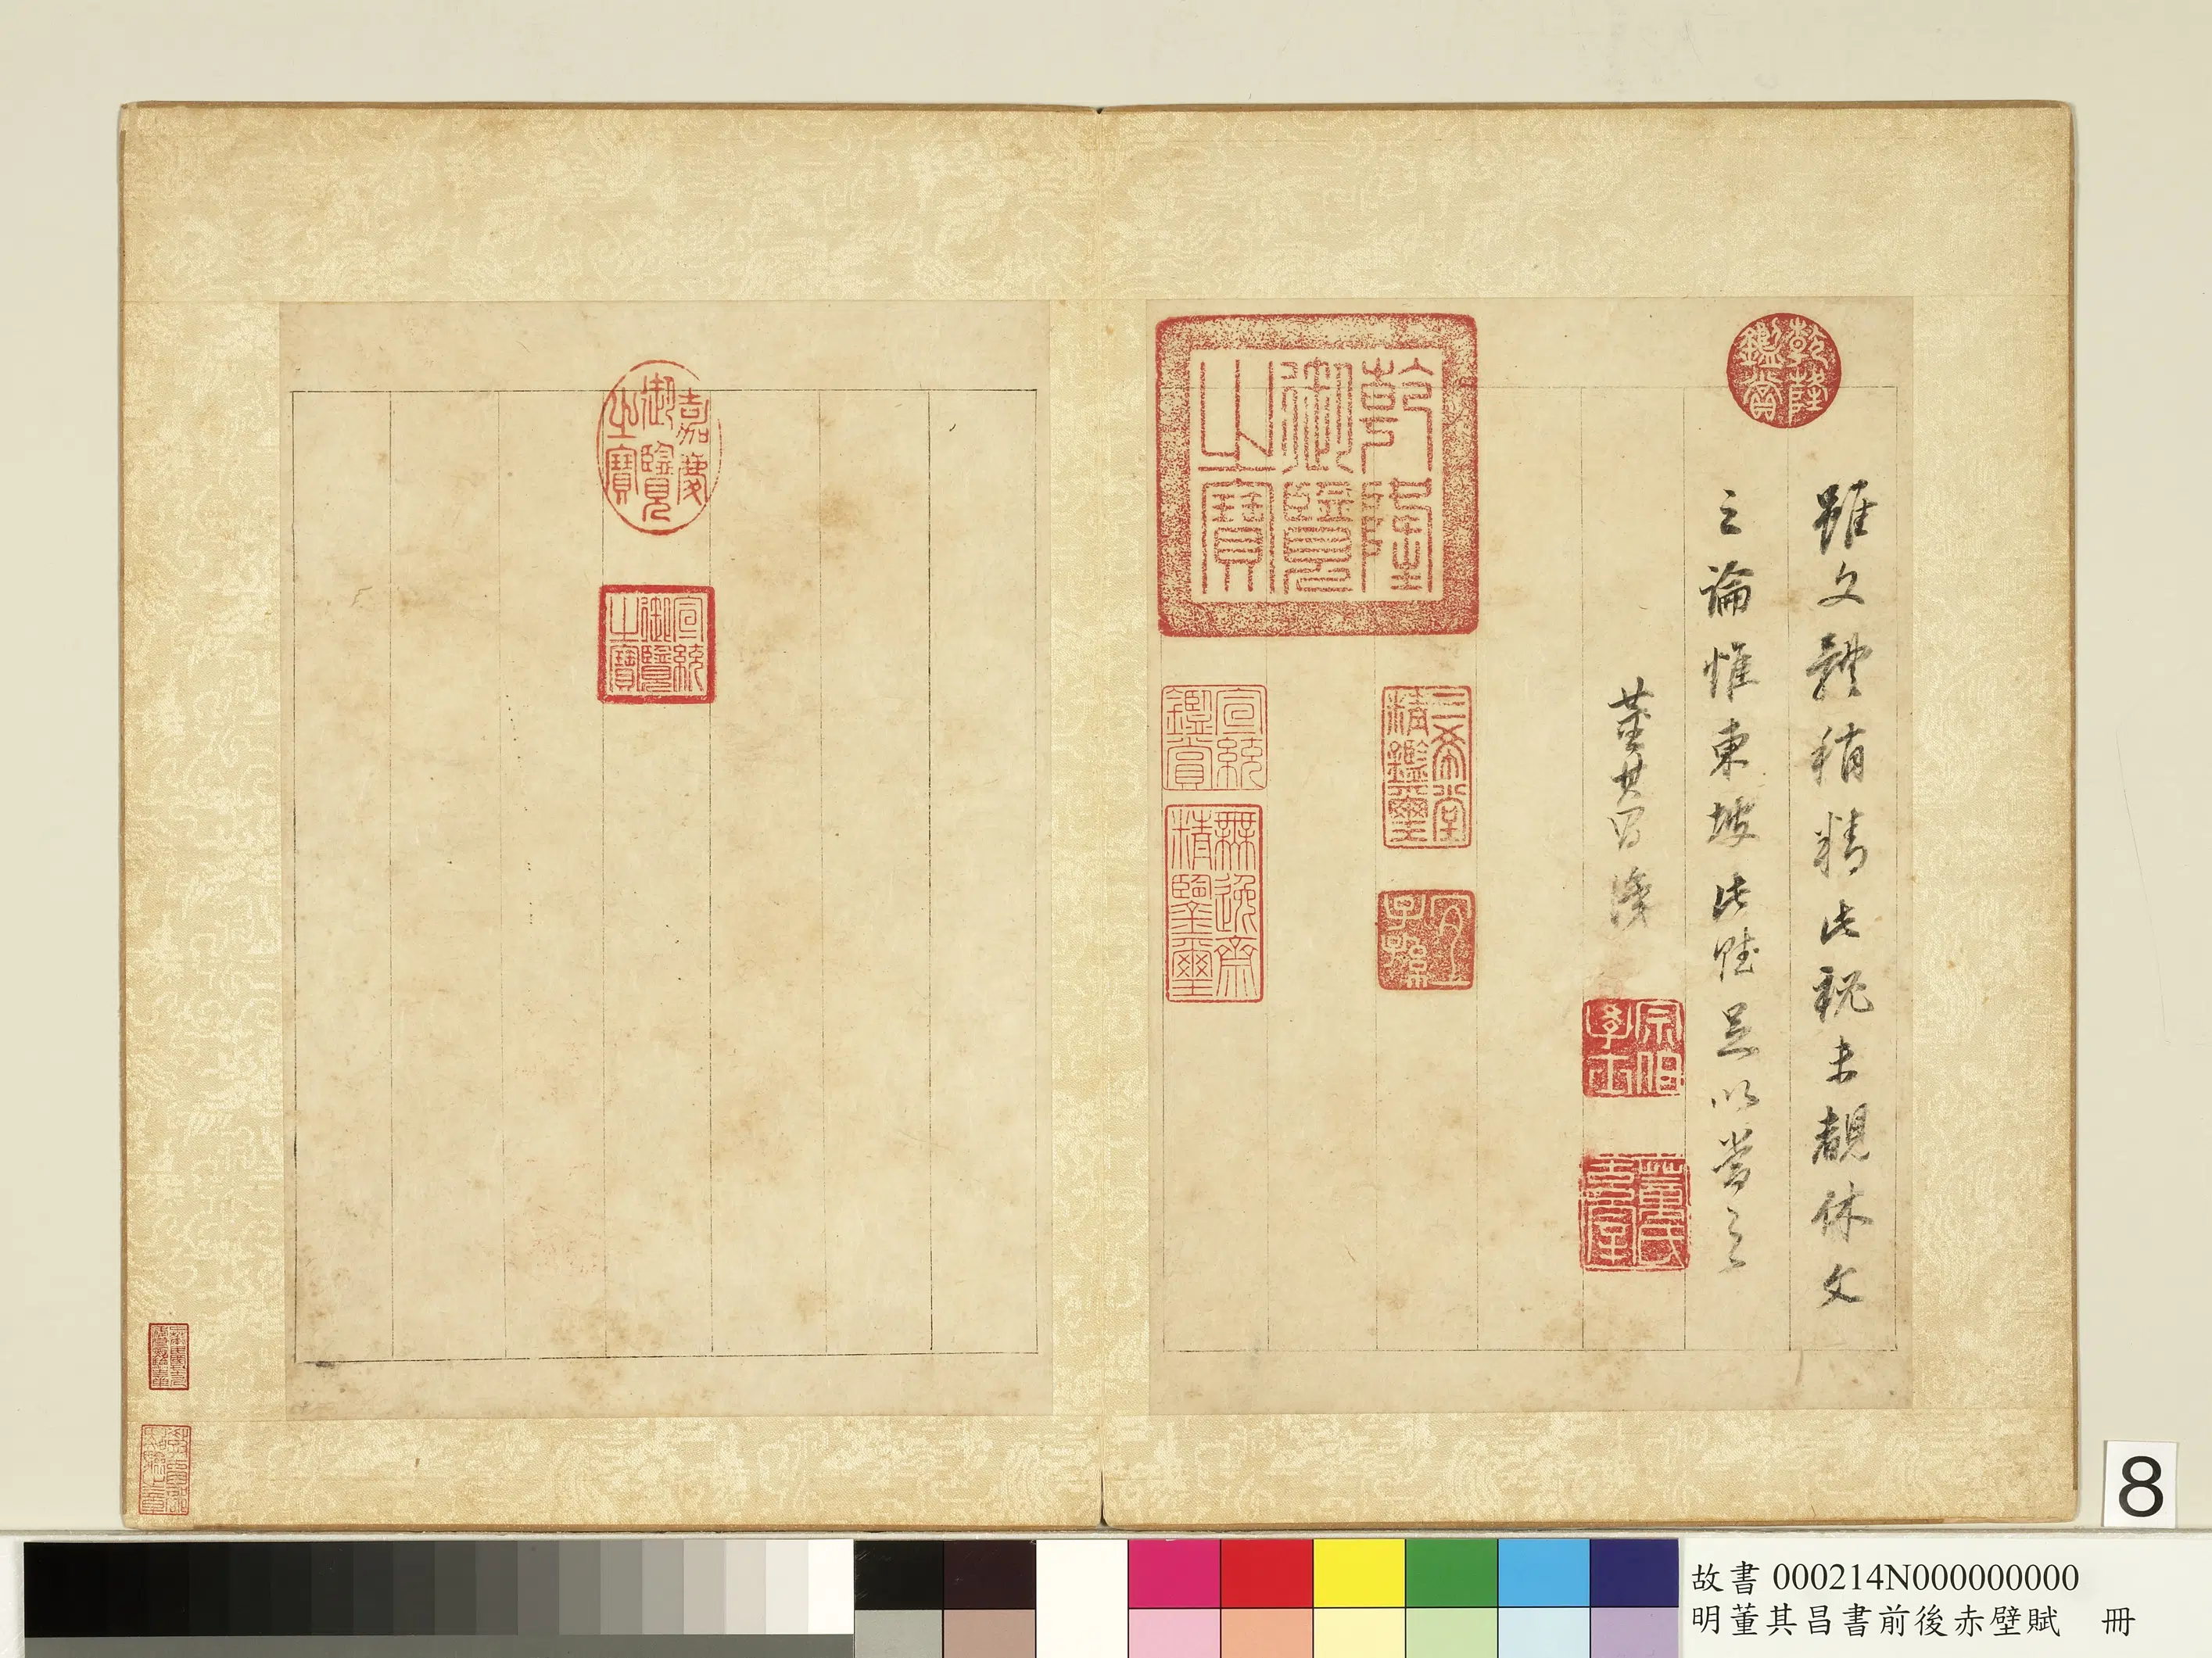 雖文體稍精此祕未覩休文
之論惟東坡此賦足以當之
董其昌識
乾隆鑑賞
乾隆御覽之寶
三希堂精鑑璽
宜子孫
宗伯學士
董氏玄宰
宣統鑑賞
無逸齋精鑒璽
嘉慶御覽之寶
宣統御覽之寶
8
故書 000214N000000000
明董其昌書前後赤壁賦 冊